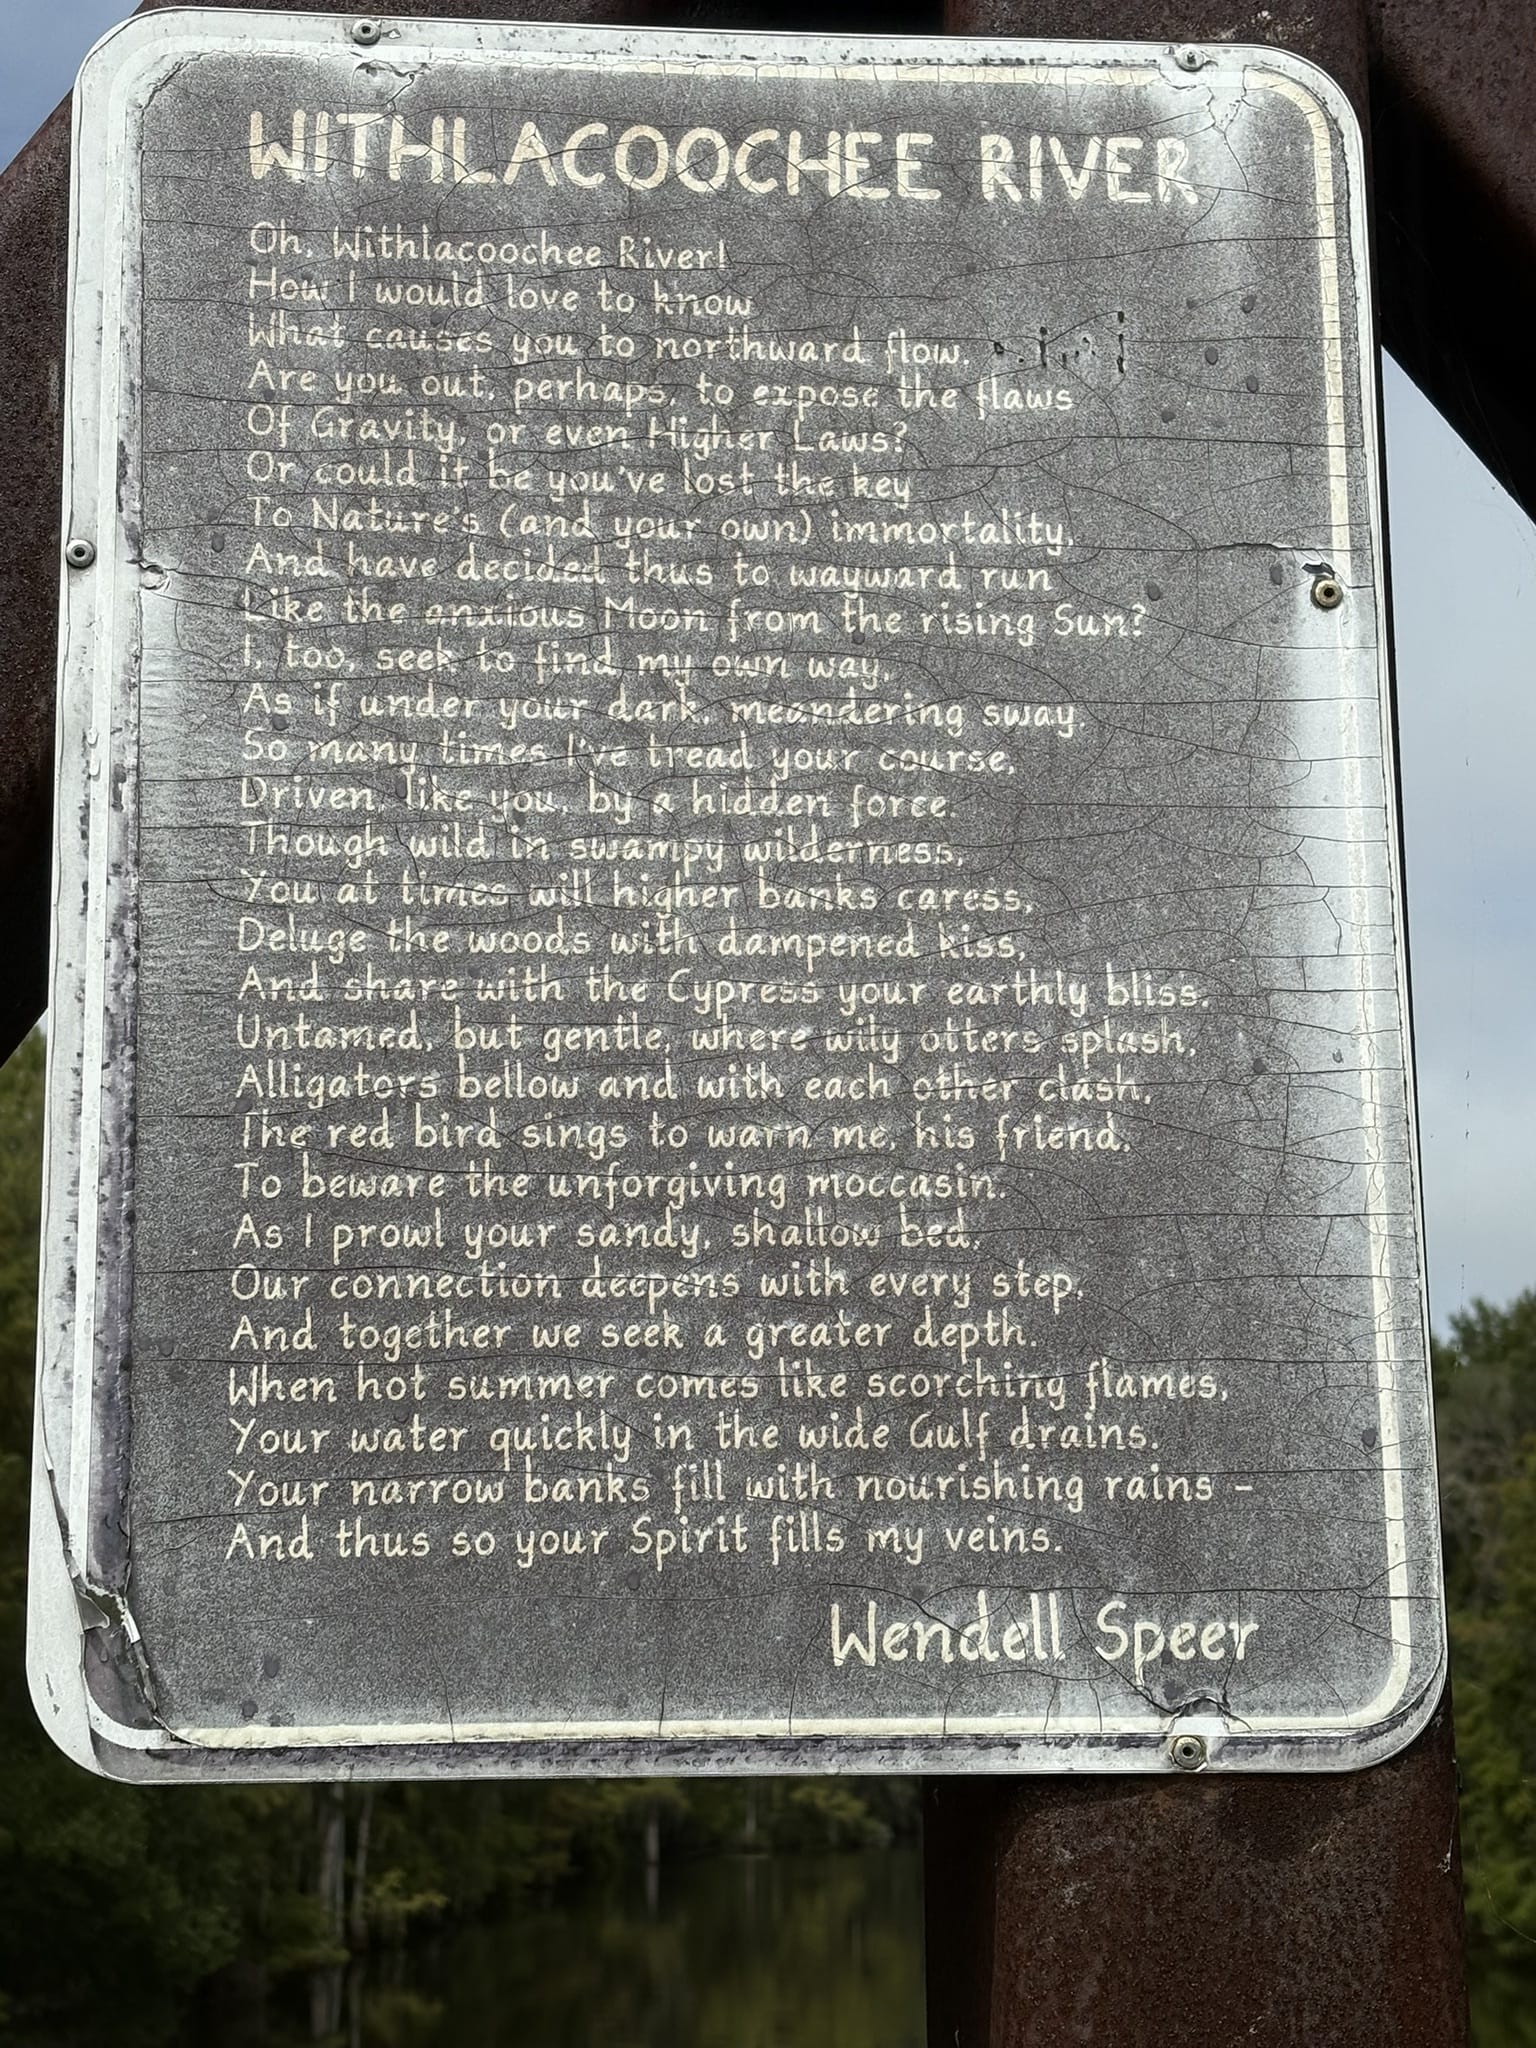 WITHLACOOCHEE RIVER
Oh, Withlacoochee River!
How I would love to know
What causes you to northward flow.
Are you out, perhaps, to expose the flaws
Of Gravity, or even Higher Laws?
Or could it be you've lost the key
To Nature's (and your own) immortality,
And have decided thus to wayward run
Like the anxious Moon from the rising Sun?
I, too, seek to find my own way,
As if under your dark, meandering sway.
So many times I've tread your course,
Driven, like you, by a hidden force.
Though wild in swampy wilderness,
You at times will higher banks caress,
Deluge the woods with dampened kiss,
And share with the Cypress your earthly bliss.
Untamed, but gentle, where wily otters splash,
Alligators bellow and with each other clash,
The red bird sings to warn me, his friend,
To beware the unforgiving moccasin.
As I prowl your sandy, shallow bed,
Our connection deepens with every step,
And together we seek a greater depth.
When hot summer comes like scorching flames,
Your water quickly in the wide Gulf drains.
Your narrow banks fill with nourishing rains -
And thus so your Spirit fills my veins.
Wendell Speer